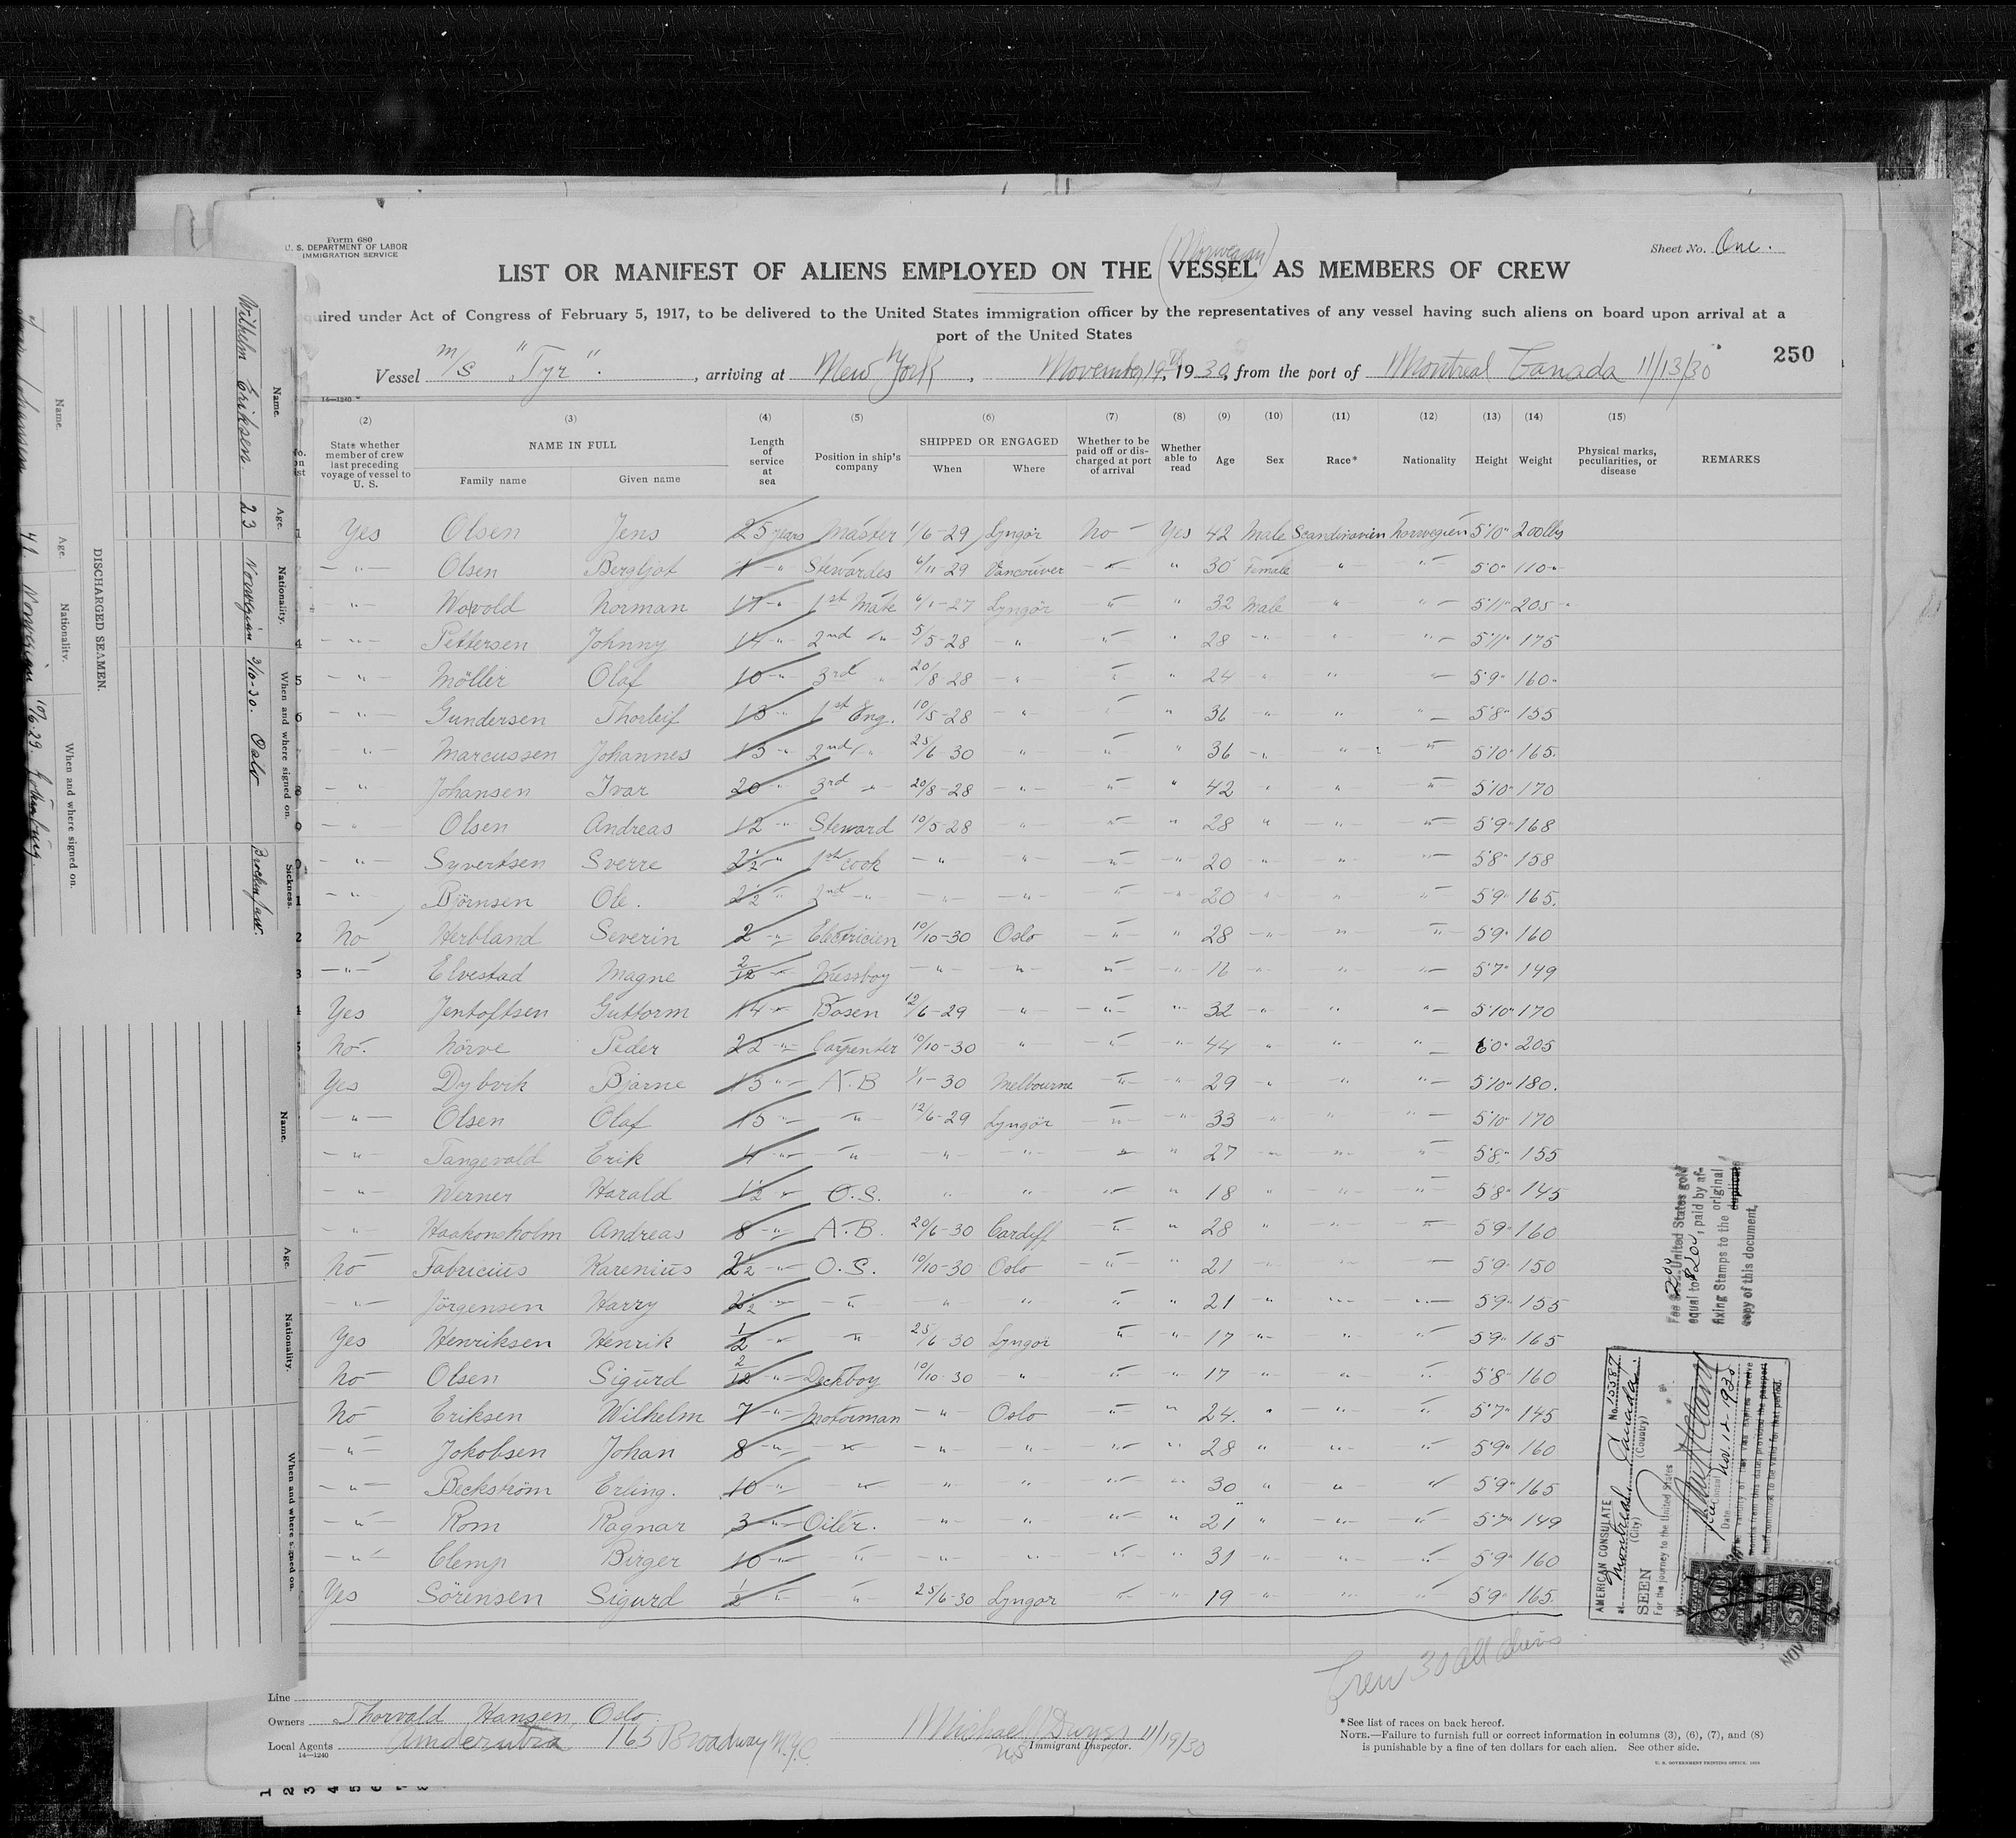 Form 680
U. S. DEPARTMENT OF LABOR
IMMIGRATION SERVICE
(Norwegian)
Sheet No. One.
LIST OR MANIFEST OF ALIENS EMPLOYED ON THE VESSEL AS MEMBERS OF CREW
quired under Act of Congress of February 5, 1917, to be delivered to the United States immigration officer by the representatives of any vessel having such aliens on board upon arrival at a
port of the United States
250
Vessel m/s "Tyr". , arriving at New York , November 19th, 1930, from the port of Montreal Canada 11/13/30
14—1240
(2) (3) (4) (5) (6) (7) (8) (9) (10) (11) (12) (13) (14) (15)
State whether member of crew last preceding voyage of vessel to U. S. NAME IN FULL Family name Given name Length of service at sea Position in ship's company SHIPPED OR ENGAGED When Where Whether to be paid off or discharged at port of arrival Whether able to read Age Sex Race* Nationality Height Weight Physical marks, peculiarities, or disease REMARKS
1 Yes Olsen Jens 25 years Master 1/6-29 Lyngör No Yes 42 Male Scandinavien Norwegien 5'10" 200 lbs
-"- Olsen Bergljot 1 -"- Stewardes 6/11-29 Vancouver -"- " 30 Female " -"- 5'0" 110 -"-
-"- Wovold Norman 17 -"- 1st Mate 6/1-27 Lyngör -"- " 32 Male " -"- 5'11" 205 -"-
4 -"- Pettersen Johnny 14 -"- 2nd -"- 5/5-28 -"- -"- " 28 -"- " -"- 5'11" 175
5 -"- Möller Olaf 10 -"- 3rd " 20/8-28 -"- -"- " 24 -"- " -"- 5'9" 160
6 -"- Gundersen Thorleif 13 -"- 1st Eng. 10/5-28 -"- -"- " 36 -"- " -"- 5'8" 155
-"- Marcussen Johannes 13 -"- 2nd " 25/6-30 -"- -"- " 36 -"- " -"- 5'10" 165.
8 -"- Johansen Ivar 20 -"- 3rd -"- 20/8-28 -"- -"- " 42 " " -"- 5'10" 170
9 -"- Olsen Andreas 12 -"- Steward 10/5-28 " -"- " 28 " -"- -"- 5'9" 168
0 -"- Syvertsen Sverre 2½ -"- 1st cook -"- " -"- -"- 20 " " -"- 5'8" 158
1 -"- Björnsen Ole. 2½ -"- 2nd -"- -"- -"- -"- -"- 20 " " -"- 5'9" 165.
2 No Herbland Severin 2 -"- Electricien 10/10-30 Oslo -"- " 28 -"- " -"- 5'9" 160
3 -"- Elvestad Magne 2/12 -"- Messboy -"- -"- -"- " 16 -"- " -"- 5'7" 149
4 Yes Jentoftsen Guttorm 14 -"- Bosen 12/6-29 -"- -"- -"- 32 -"- " -"- 5'10" 170
No. Nörve Peder 22 -"- Carpenter 10/10-30 " -"- -"- 44 " " -"- 6'0" 205
Yes Dybvik Bjarne 13 -"- A.B 1/1-30 Melbourne -"- -"- 29 -"- " -"- 5'10" 180.
-"- Olsen Olaf 15 -"- -"- 12/6-29 Lyngör -"- -"- 33 -"- " -"- 5'10" 170
-"- Tangevald Erik 4 -"- -"- -"- -"- -"- " 27 -"- -"- -"- 5'8" 155
-"- Werner Harald 1½ -"- O.S. " " -"- " 18 " -"- -"- 5'8" 145
-"- Haakonsholm Andreas 8 -"- A.B. 20/6-30 Cardiff -"- " 28 " -"- -"- 5'9" 160
No Fabricius Karenius 2½ -"- O.S. 10/10-30 Oslo -"- " 21 " -"- -"- 5'9" 150
-"- Jörgensen Harry 2½ -"- -"- -"- " -"- " 21 -"- -"- -"- 5'9" 155
Yes Henriksen Henrik 1/2 -"- -"- 25/6-30 Lyngör -"- " 17 -"- " -"- 5'9" 165
No Olsen Sigurd 2/12 -"- Deckboy 10/10-30 -"- -"- " 17 -"- " -"- 5'8" 160
No Eriksen Wilhelm 7 -"- Motorman -"- Oslo -"- " 24. " -"- -"- 5'7" 145
-"- Jokobsen Johan 8 -"- -"- -"- " -"- " 28 " -"- -"- 5'9" 160
-"- Beckström Erling. 10 -"- -"- " " -"- -"- 30 " -"- " 5'9" 165
-"- Rom Ragnar 3 -"- Oiler. -"- " -"- " 21 " -"- -"- 5'7" 149
-"- Clemp Birger 10 -"- -"- -"- " -"- " 31 -"- -"- -"- 5'9" 160
Yes Sörensen Sigurd 1/2 -"- -"- 25/6-30 Lyngor -"- " 19 -"- -"- -"- 5'9" 165.
Crew 30 all aliens
Line
Owners Thorvald Hansen, Oslo.
Local Agents 165 Broadway N.Y.C.
14—1240
Michael
US Immigrant Inspector. 11/19/30
*See list of races on back hereof.
NOTE.—Failure to furnish full or correct information in columns (3), (6), (7), and (8)
is punishable by a fine of ten dollars for each alien. See other side.
U. S. GOVERNMENT PRINTING OFFICE
United States gold
equal to $2.00, paid by af-
fixing Stamps to the original
duplicate
copy of this document.
AMERICAN CONSULATE
at Montreal Canada. No. 15587
(City) (Country)
SEEN
For the journey to the United States
Date Nov. 12-1930
NOV
DISCHARGED SEAMEN.
Name. Age. Nationality. When and where signed on. Sickness.
Wilhelm Eriksen. 23 Norwegian 3/10-30. Oslo Brocken jaw.
Name. Age. Nationality. When and where signed on.
Ivar Johanssen 41. Norwegian 10/6-29. Gotenburg.
Name. Age. Nationality. When and where signed on.
1 2 3 4 5 6 7 8